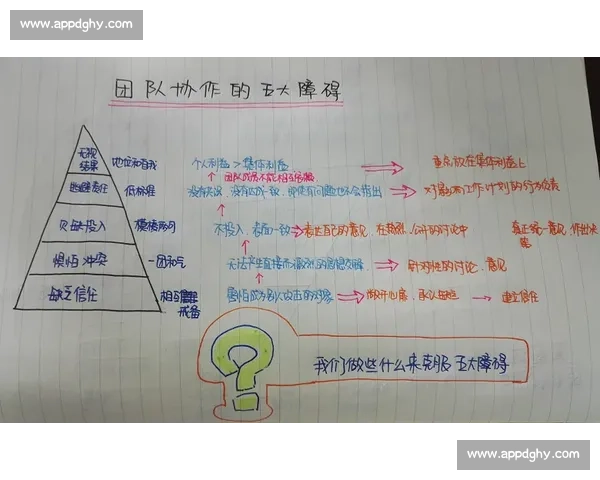 www.appdghy.com
团队协作的五大障碍
无视结果 地位和自我 个人利益>集体利益 重点放在集体利益上
团队成员不能相互
逃避责任 低标准 没有 没有 对 工作计划的 负责
欠缺投入 模棱两可 不投入,表面一致 表达自己的意见,在 公开的讨论中 真正统一意见,作出决策
惧怕冲突 一团和气 无法产生直接而激烈的思想交锋 针对性的讨论、意见
缺乏信任 相互 戒备 害怕成为别人攻击的对象 敞开心扉,承认 建立信任
我们做些什么来克服五大障碍
www.appdghy.com